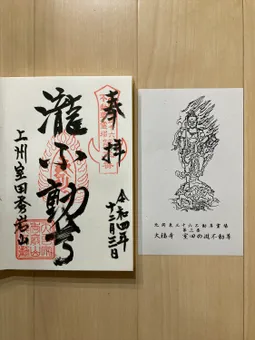 奉拝
瀧不動尊
上州室田秀岩山
令和四年
十二月三日
北関東三十六不動尊霊場
第三番
大福寺 室田の滝不動尊